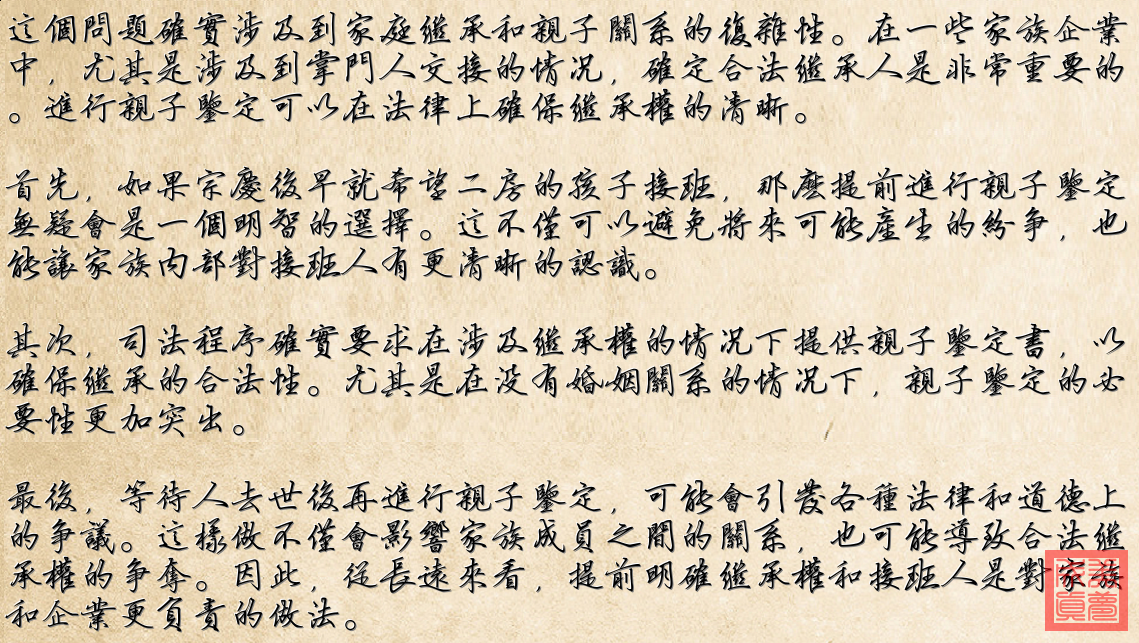 這個問題確實涉及到家庭繼承和親子關系的復雜性。在一些家族企業
中，尤其是涉及到掌門人交接的情況，確定合法繼承人是非常重要的
。進行親子鑒定可以在法律上確保繼承權的清晰。
首先，如果宗慶後早就希望二房的孩子接班，那麽提前進行親子鑒定
無疑會是一個明智的選擇。這不僅可以避免將來可能產生的紛爭，也
能讓家族內部對接班人有更清晰的認識。
其次，司法程序確實要求在涉及繼承權的情況下提供親子鑒定書，以
確保繼承的合法性。尤其是在沒有婚姻關系的情況下，親子鑒定的必
要性更加突出。
最後，等待人去世後再進行親子鑒定，可能會引發各種法律和道德上
的爭議。這樣做不僅會影響家族成員之間的關系，也可能導致合法繼
承權的爭奪。因此，從長遠來看，提前明確繼承權和接班人是對家族
和企業更負責的做法。